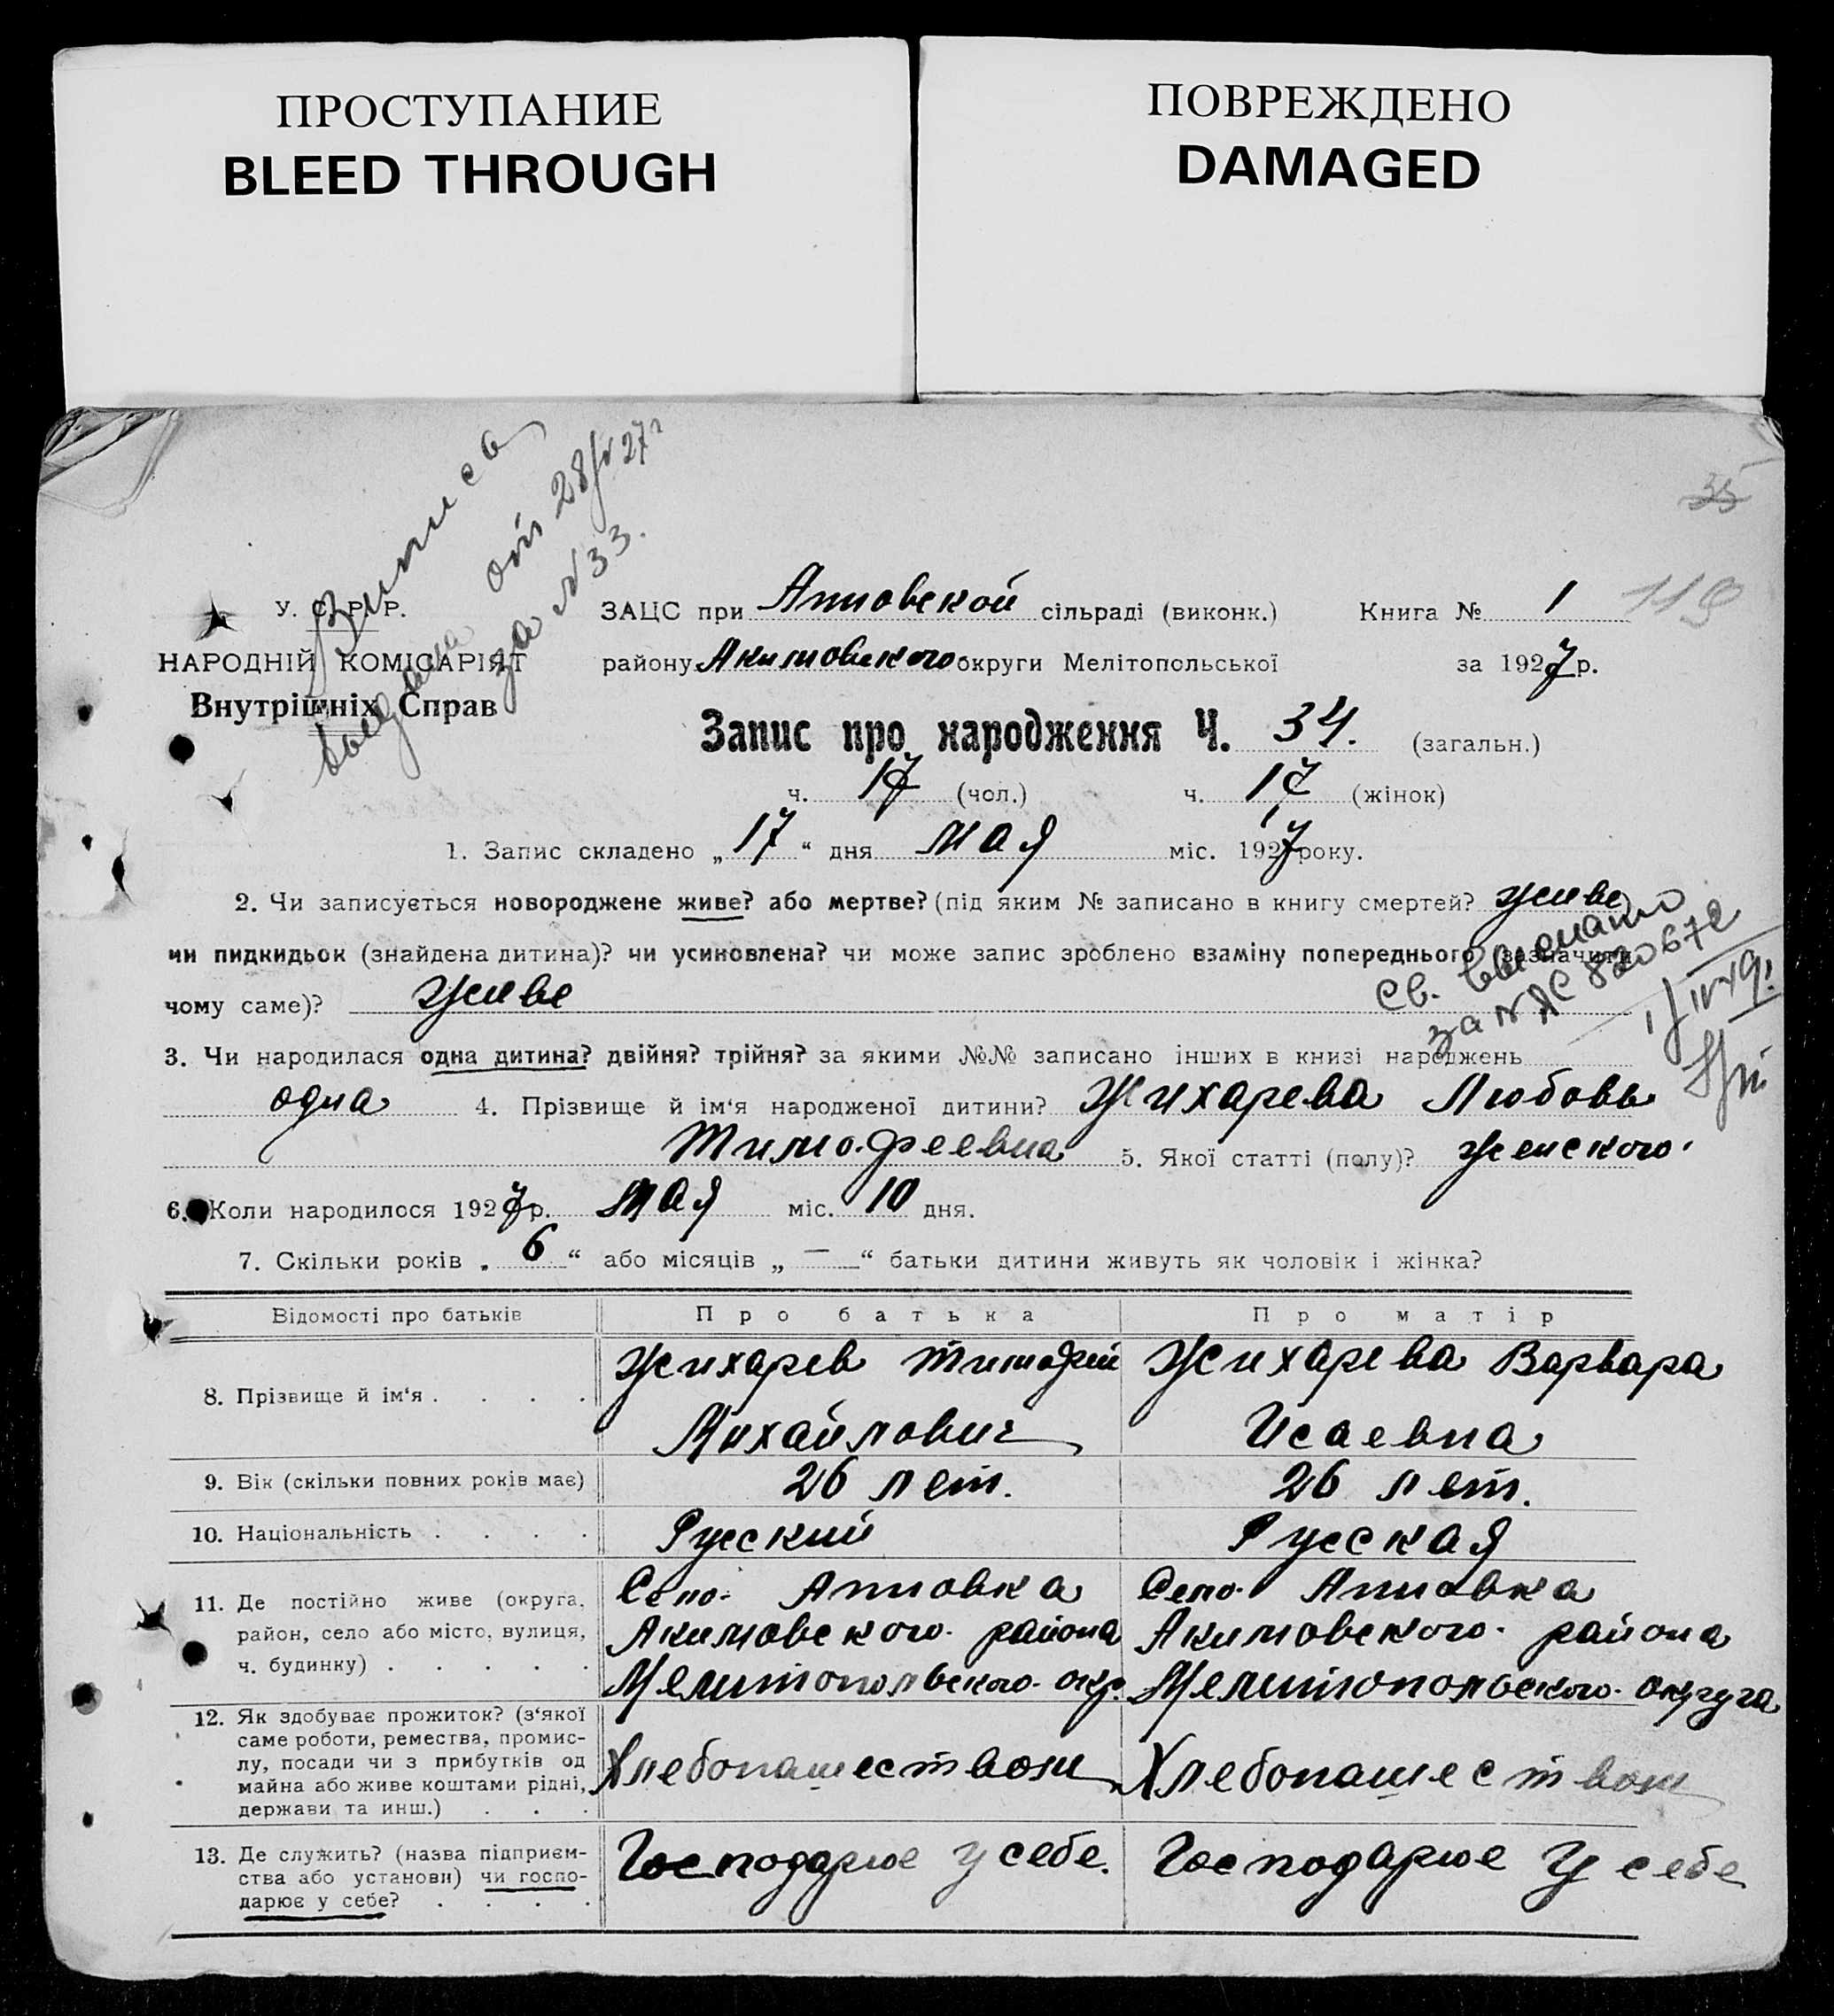 ПРОСТУПАНИЕ
BLEED THROUGH
ПОВРЕЖДЕНО
DAMAGED
35
Выпись
выдана от 28/IV 27г
за N 33.
У. С. Р. Р.
НАРОДНІЙ КОМІСАРІЯТ
Внутрішніх Справ
ЗАЦС при Анновской сільраді (виконк.) Книга № 1 119
району Акимовского округи Мелітопольської за 1927 р.
Запис про народження Ч. 34. (загальн.)
ч. 17 (чол.) ч. 17 (жінок)
1. Запис складено „ 17 “ дня мая міс. 1927 року.
2. Чи записується новороджене живе? або мертве? (під яким № записано в книгу смертей? живе
чи пидкидьок (знайдена дитина)? чи усиновлена? чи може запис зроблено взаміну попереднього (зазначити
чому саме)? живе
Св. выслано
за N ЯС 820672
3. Чи народилася одна дитина? двійня? трійня? за якими №№ записано інших в книзі народжень
одна 4. Прізвище й ім‘я народженої дитини? Жихарева Любовь
Тимофеевна 5. Якої статті (полу)? женского
6. Коли народилося 1927 р. мая міс. 10 дня.
7. Скільки років „ 6 “ або місяців „ — “ батьки дитини живуть як чоловік і жінка?
Відомості про батьків Про батька Про матір
8. Прізвище й ім‘я . . . . Жихарев Тимофей Жихарева Варвара
Михайлович Исаевна
9. Вік (скільки повних років має) 26 лет. 26 лет.
10. Національність . . . . Русский Русская
11. Де постійно живе (округа, Село Анновка Село Анновка
район, село або місто, вулиця, Акимовского района Акимовского района
ч. будинку) . . . . . Мелитопольского окр. Мелитопольского округа
12. Як здобуває прожиток? (з‘якої
саме роботи, ремества, промис-
лу, посади чи з прибутків од Хлебопашеством Хлебопашеством
майна або живе коштами рідні,
держави та инш.) . . .
13. Де служить? (назва підприєм- Господарює у себе. Господарює у себе
ства або установи) чи госпо-
дарює у себе? . . . .